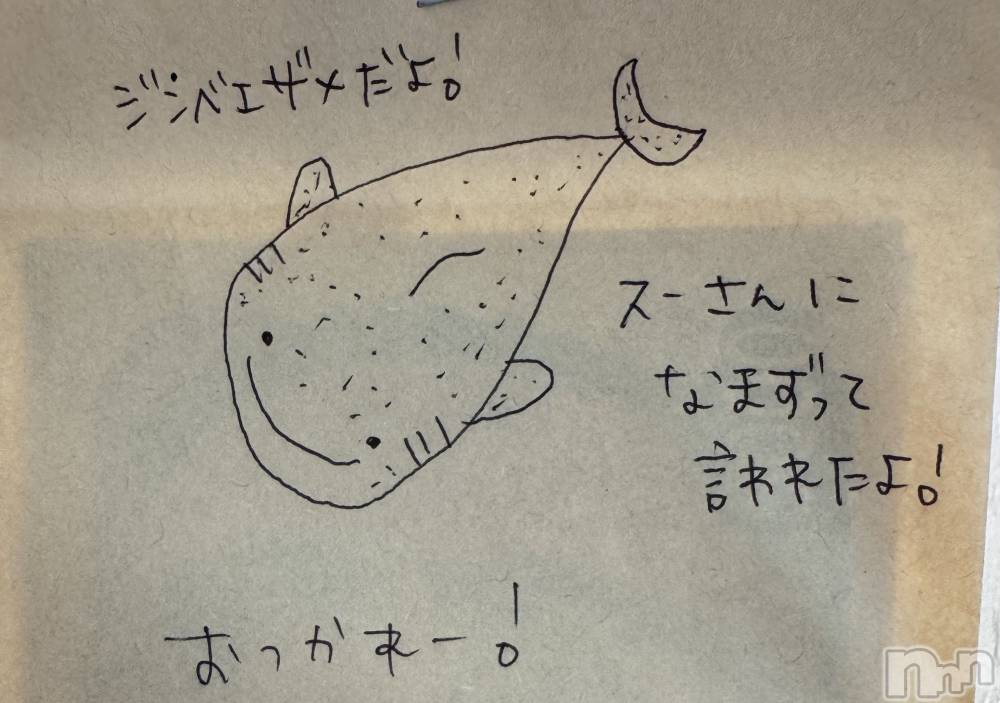 ジンベエザメだよ!
スーさんに
なまずって
言われたよ!
おっかれー!
nnn